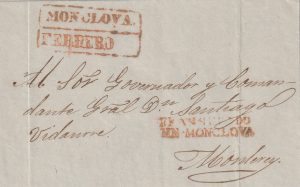 MONCLOVA.
FEBRERO
Al Sor Governador y Coman-
dante Gral Dn Santiago
Vidaurre.
FRANQUEADO
EN MONCLOVA
Monterey.